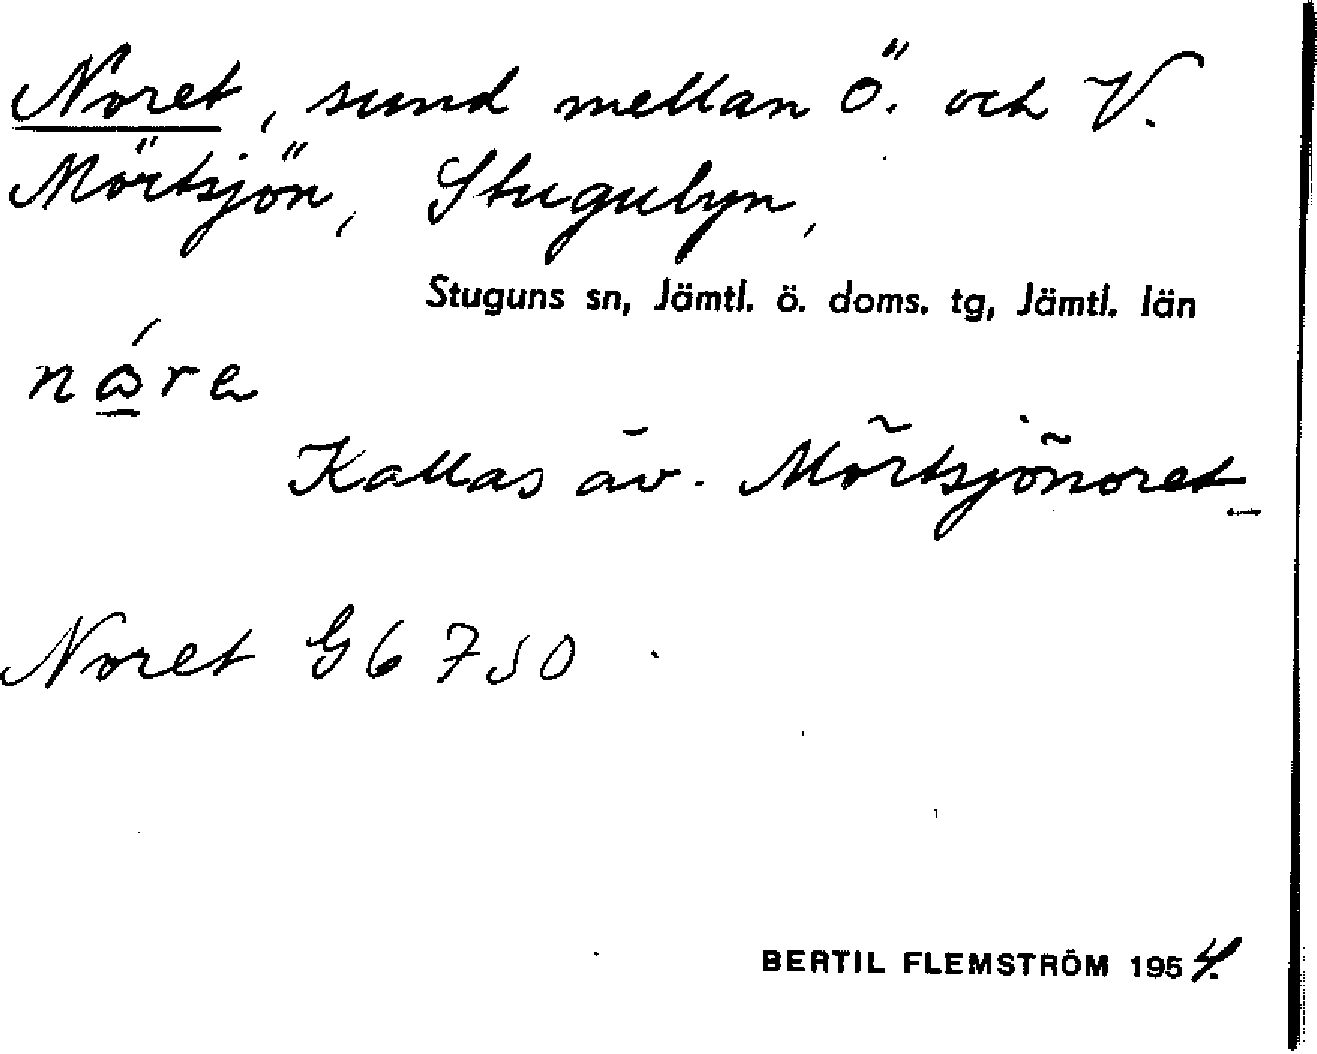 Noret, sund mellan Ö. och V.
Mörtsjön, Stugubyn,
Stuguns sn, Jämtl. ö. doms. tg, Jämtl. län
Kallas äv. Mörtsjönoret
Noret G6 7 J0
BERTIL FLEMSTRÖM 1954.